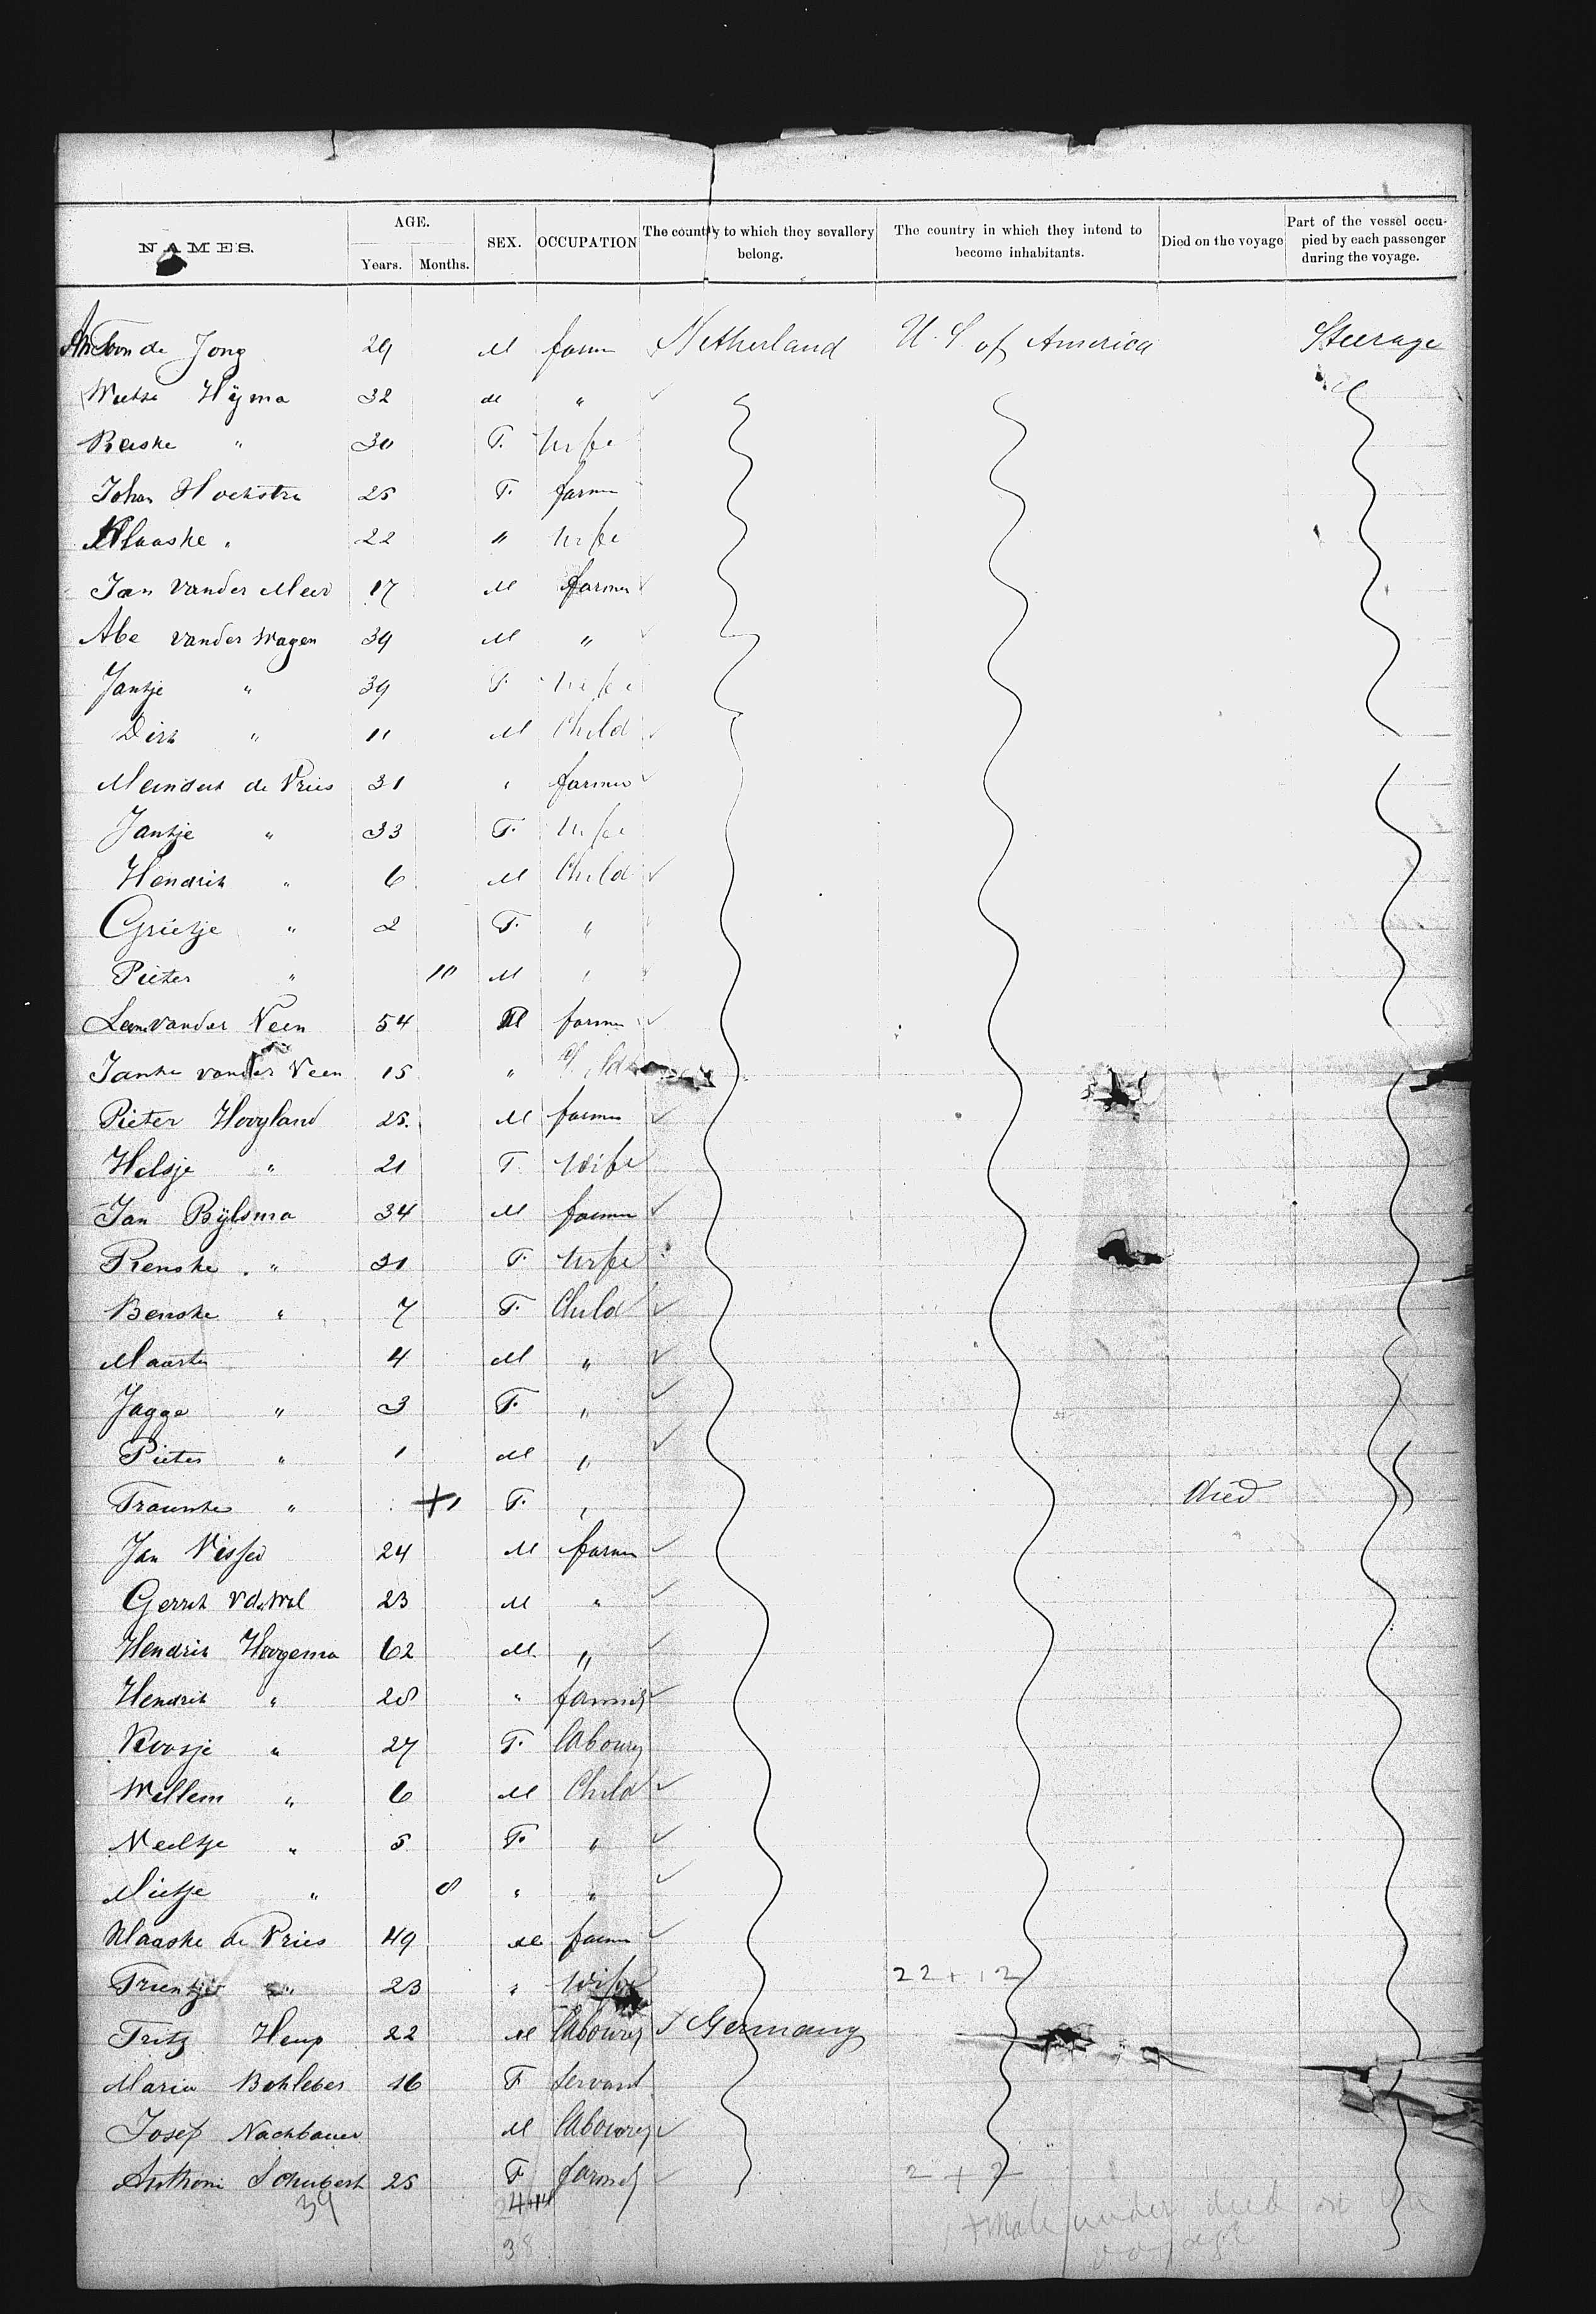 NAMES. AGE. Years. Months. SEX. OCCUPATION The country to which they sevallery belong. The country in which they intend to become inhabitants. Died on the voyage Part of the vessel occupied by each passenger during the voyage.
de Jong 29 M farm Netherland U. S. of America Steerage
Wietse Hÿma 32 M "
Baske " 30 F. wife
Johan Hoekstra 25 F. farmer
Klaaske " 22 " wife
Jan van der Meer 17 M farmer
Abe van der Wagen 39 M "
Jantje " 39 F. wife
Dirk " 11 M Child
Meindert de Vries 31 " farmer
Jantje " 33 F. wife
Hendrik " 6 M Child
Grietje " 2 F. "
Pieter " 10 M "
van der Veen 54 M farmer
Janke van der Veen 15 " Child
Pieter Hoogland 25. M farmer
Hilsje " 21 F wife
Jan Bÿlsma 34 M farmer
Renske " 31 F. wife
Benske " 7 F. Child
Maarten 4 M "
Jagge " 3 F. "
Pieter " 1 M "
Trounke " +1 F. " died
Jan Visser 24 M farmer
Gerrit v d Wal 23 M "
Hendrik Hoogema 62 M. "
Hendrik " 28 " farmer
Roosje " 27 F. labourer
Willem " 6 M Child
Neeltje " 5 F. "
Mietje " 8 " "
Klaaske de Vries 49 M farmer
Trientje " 23 " wife 22 + 12
Fritz Heup 22 M labourer Germany
Maria Bohleber 16 F servant
Josef Nachbauer M labourer
Anthoni Schubert 25 F farmer 2 + 2
39 24+14 male under died on the
38 voyage